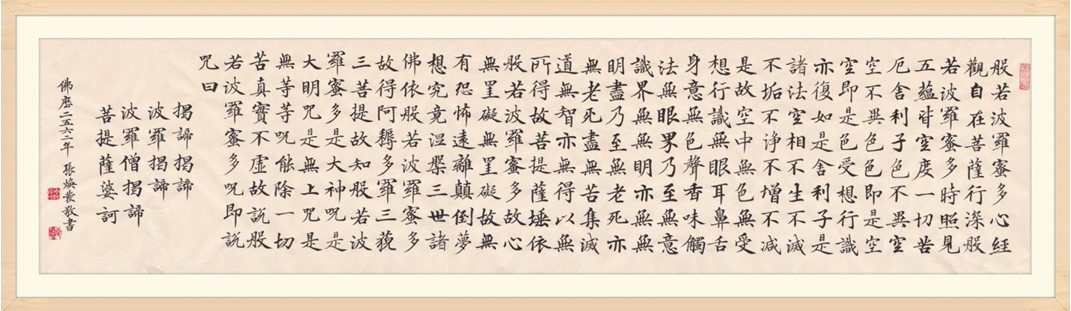 般若波羅蜜多心經
觀自在菩薩行深般
若波羅蜜多時照見
五蘊皆空度一切苦
厄舍利子色不異空
空不異色色即是空
空即是色受想行識
亦復如是舍利子是
諸法空相不生不滅
不垢不淨不增不減
是故空中無色無受
想行識無眼耳鼻舌
身意無色聲香味觸
法無眼界乃至無意
識界無無明亦無無
明盡乃至無老死亦
無老死盡無苦集滅
道無智亦無得以無
所得故菩提薩埵依
般若波羅蜜多故心
無罣礙無罣礙故無
有恐怖遠離顛倒夢
想究竟涅槃三世諸
佛依般若波羅蜜多
故得阿耨多羅三藐
三菩提故知般若波
羅蜜多是大神咒是
大明咒是無上咒是
無等等呪能除一切
苦真實不虛故說般
若波羅蜜多呪即說
咒曰
揭諦揭諦
波羅揭諦
波羅僧揭諦
菩提薩婆訶
佛歷二五六二年 張煥 敬書